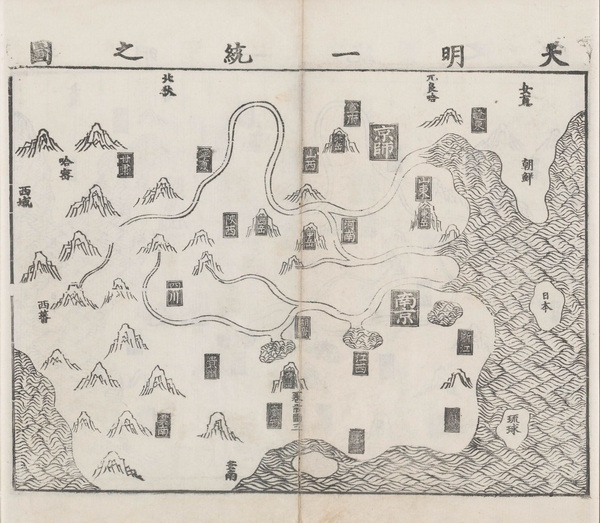 大明一統之圖
女直
兀良哈
北狄
遼東
京師
朝鮮
甘肅
哈密
山西
山東
西域
陝西
河南
四川
西蕃
南京
日本
浙江
江西
貴州
琉球
雲南